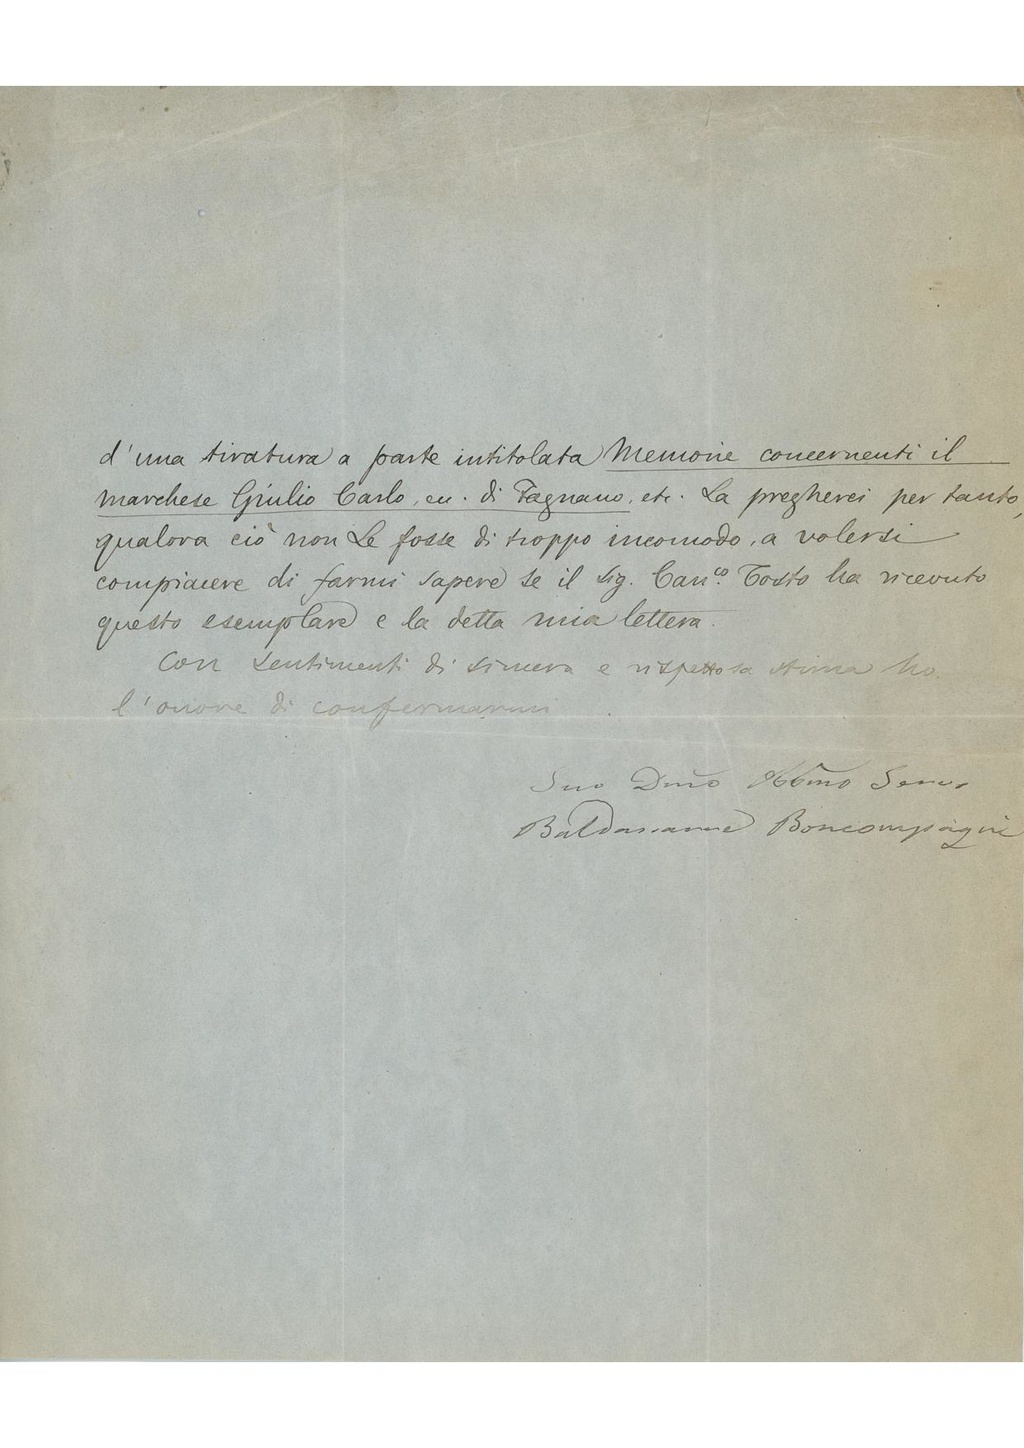 d'una tiratura a parte intitolata Memorie concernenti il
marchese Giulio Carlo, ec. di Fagnano, etc. La pregherei per tanto,
qualora ciò non Le fosse di troppo incomodo, a volersi
compiacere di farmi sapere se il sig. Can.co Tosto ha ricevuto
questo esemplare e la detta mia lettera.
Con sentimenti di sincera e rispettosa stima ho
l'onore di confermarmi
Suo Dmo Obbmo Serv.
Baldassarre Boncompagni